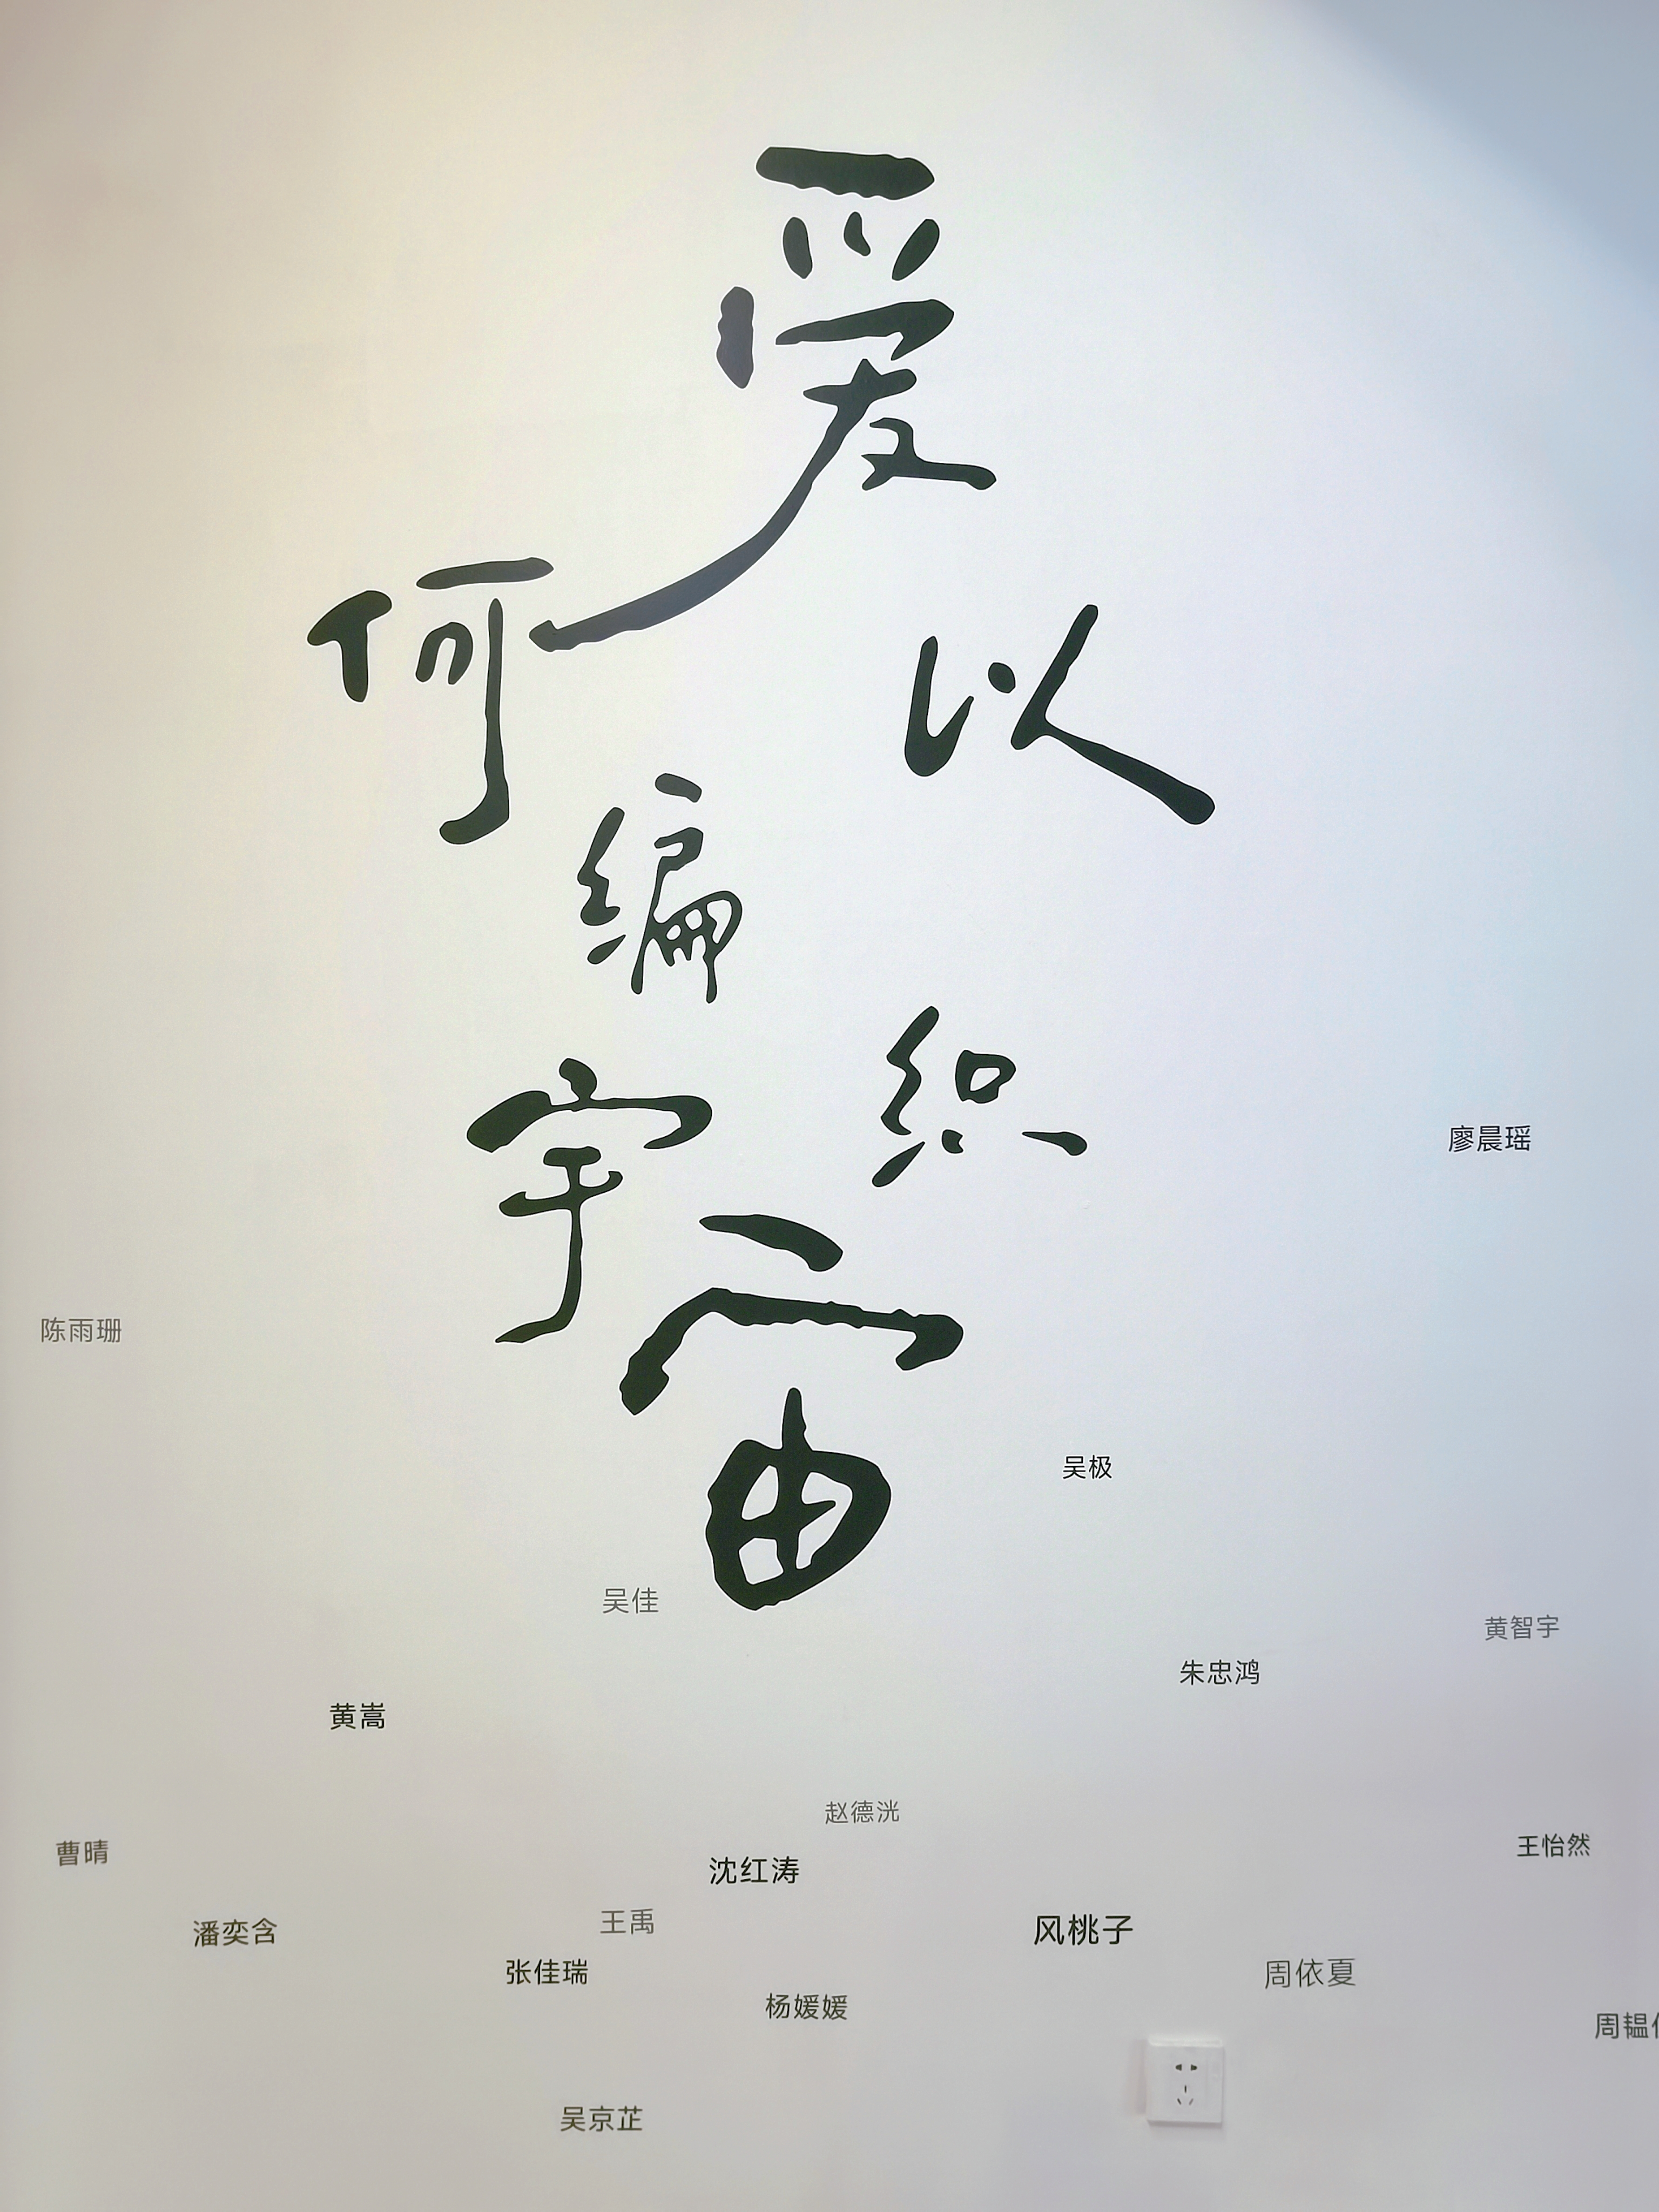 爱
何以
编织
宇宙
廖晨瑶
陈雨珊
吴极
吴佳
黄智宇
朱忠鸿
黄嵩
赵德洸
王怡然
曹晴
沈红涛
王禹
风桃子
潘奕含
张佳瑞
周依夏
杨媛媛
周韫
吴京芷